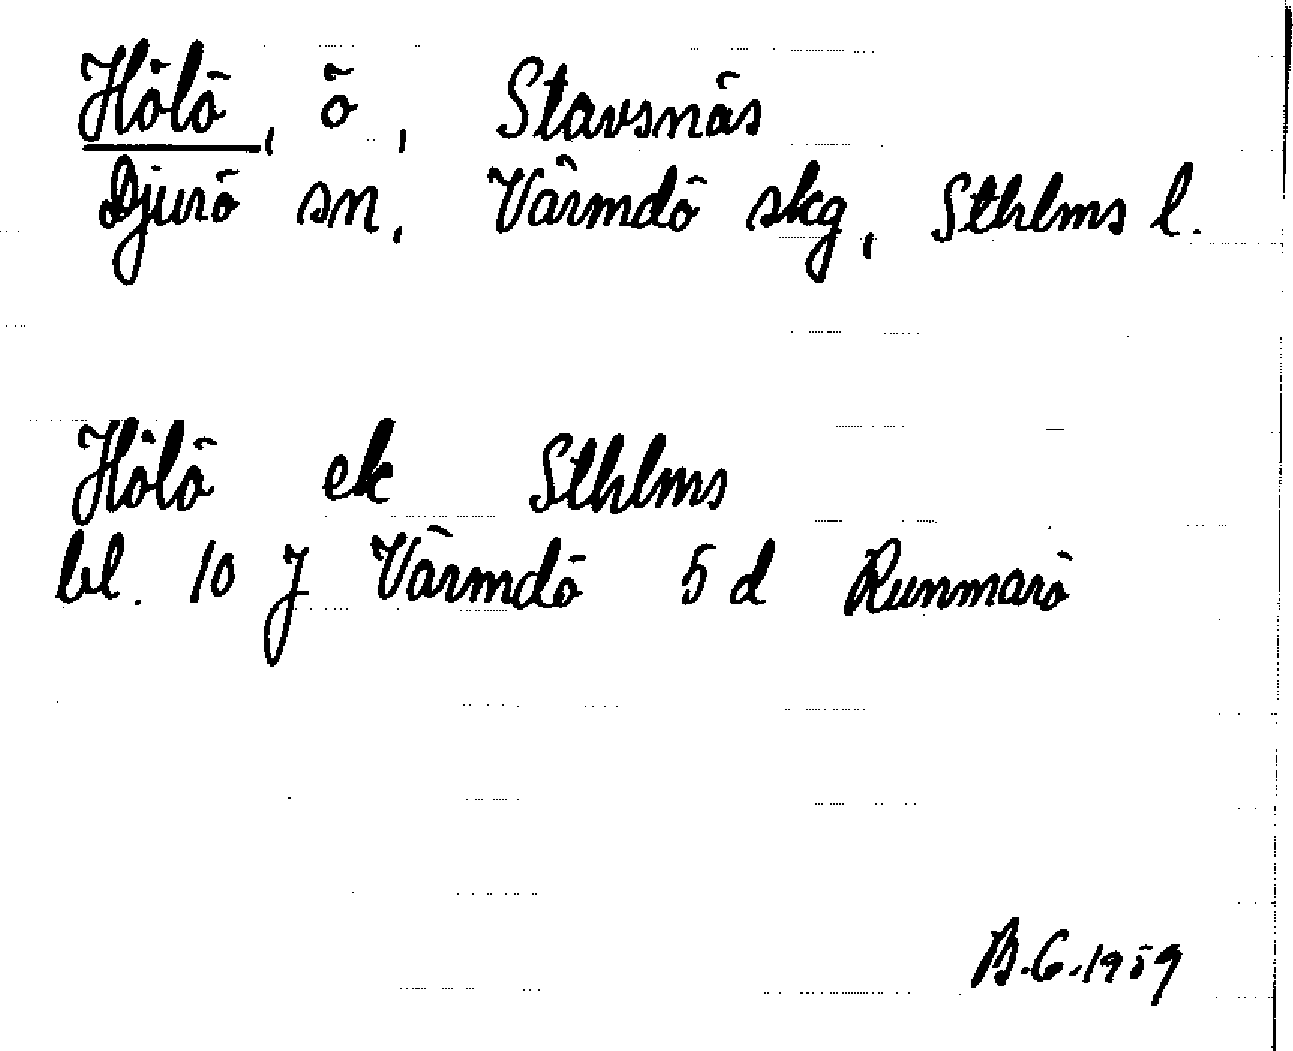 Hölö, ö, Stavsnäs
Djurö sn, Värmdö skg, Sthlms l.
Hölö ek Sthlms
bl. 10 J Värmdö 5 d Runmarö
B.G. 1959